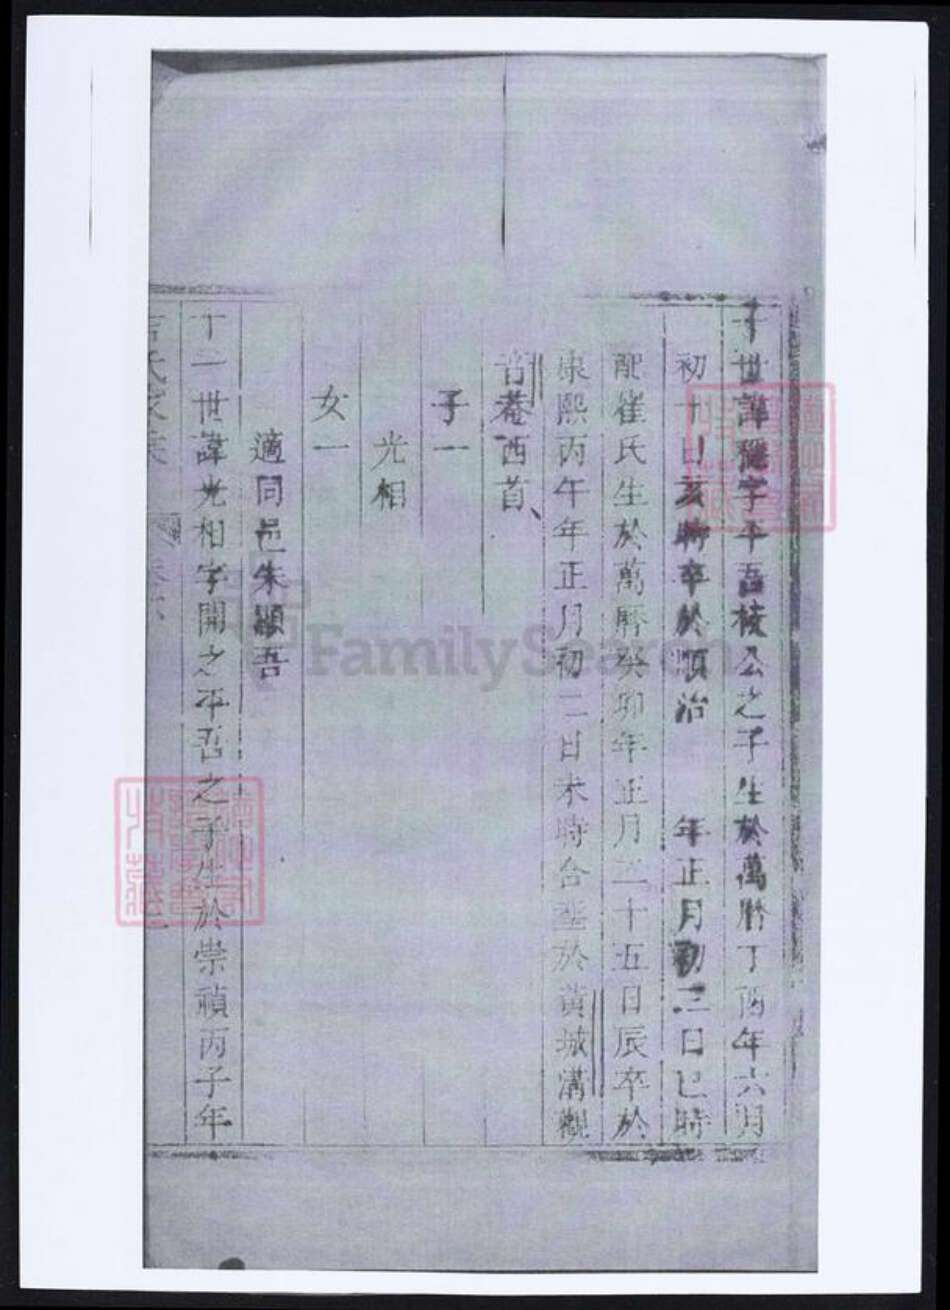 世諱穩字平吾棱公之子生於萬曆丁酉年六月
初十日亥時卒於順治 年正月初三日巳時
配崔氏生於萬曆癸卯年正月二十五日辰卒於
康熙丙午年正月初二日未時合塟於黃城溝觀
音菴西首、
子一
光相
女一
適同邑朱顯吾
十一世諱光相字開之平吾之子生於崇禎丙子年
氏家乗
FamilySearch